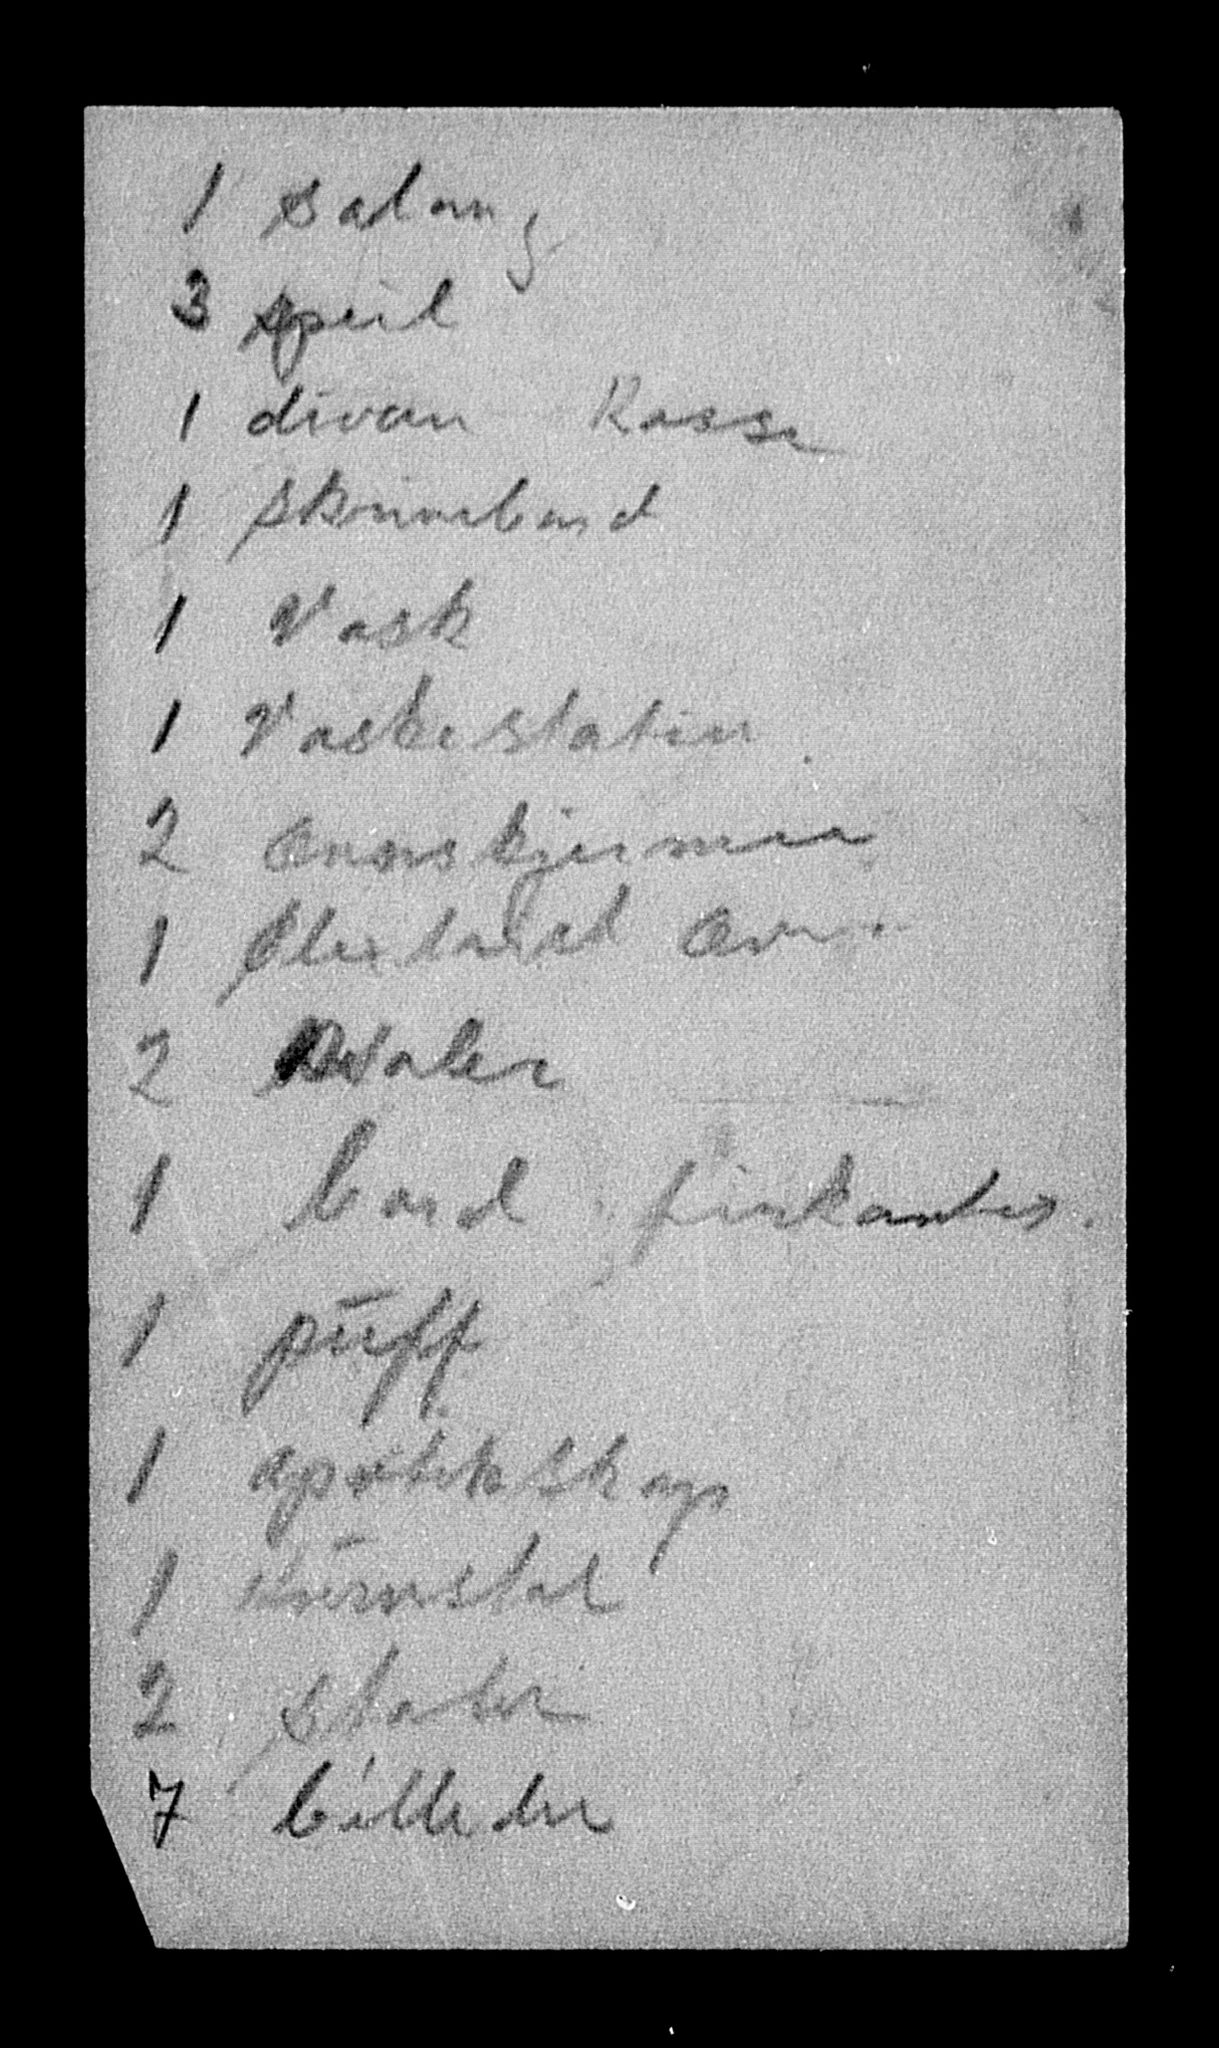 1 salong
3 speil
1 divan Kasse
1 skrivebord
1 Vask
1 Vaskestativ
2 ovnskjermer
1 Elektrisk ovn
2
1 bord firkantet.
1 puff
1 apotekskap
1 kurvstol
2 stoler
7 billeder